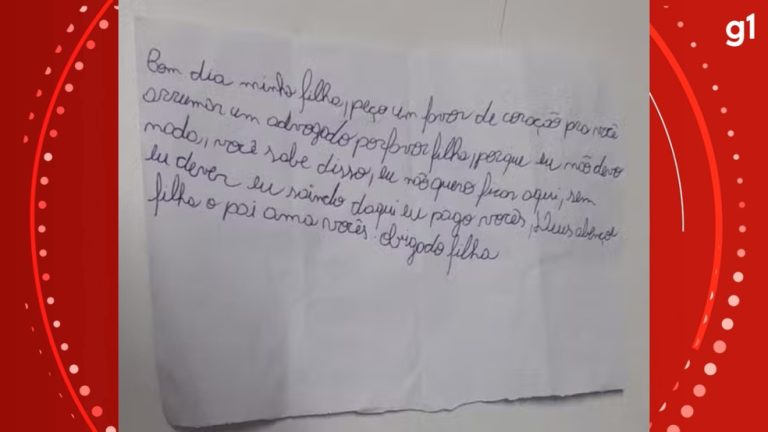 g1
Bom dia minha filha, peço um favor de coração pra você
arrumar um advogado por favor filha, porque eu não devo
nada, você sabe disso, eu não quero ficar aqui, sem
eu dever eu saindo daqui eu pago vocês, Deus abençoe
filha o pai ama vocês. obrigado filha